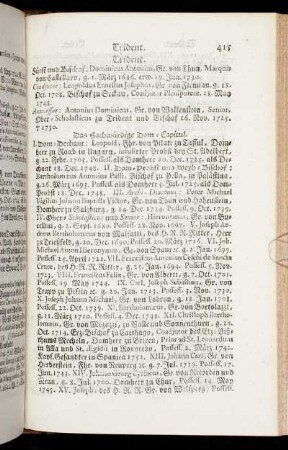 Trident. 415
Trident.
Fürst und Bischof: Dominicus Antonius, Gr. von Thun, Marquis
von Castellaro, g. 1. März 1686. erw. 19. Jun. 1730.
Coadjutor: Leopoldus Ernestus Josephus, Gr. von Firmian, g. 18.
Oct. 1708. Bischof zu Seckau, Coadjutor Plenipotent. 28. May
1748.
Antecessor: Antonius Dominicus, Gr. von Wolkenstein, Senior,
Ober-Scholasticus zu Trident und Bischof 26. Nov. 1725.
† 1730.
Das Hochwürdige Dom-Capitul.
I. Dom-Dechant: Leopold, Fhr. von Pilati zu Tassul, Dom-
herr zu Raab in Ungarn, infulirter Probst des St. Adelbert,
g. 22. Febr. 1705. Possess. als Domherr 20. Dec. 1723. als
Dechant 28. Nov. 1748. II. Dom-Probst und Weyh-Bischof:
Bartholomæus Ant. Passi, Bischof zu Pella, in Palästina,
g. 16. März 1693. Possess. als Domherr 5. Jul. 1725. als Dom-
Probst 13. Dec. 1748. III. Archi-Diaconus: Peter Michael
Vigilius Johann Hypolit Victor, Gr. von Thun und Hohenstein,
Domherr zu Salzburg, g. 14. Dec. 1724. Possess. 9. Oct. 1739.
IV. Ober-Scholasticus und Senior: Hieronymus, Gr. von Bu-
cellini, g. 2. Sept. 1680. Possess. 18. Nov. 1709. V. Joseph An-
dreas Bartholomæus von
des H. R. R. Ritter, Herr
zu g. 16. Dec. 1696. Possess. 20. März 1726. VI. Joh.
Michael Anton Hieronymus, Gr. von Spaur g. 6. Jan. 1695.
Possess. 25. April 1721. VII. Franciscus Antonius Ceschi de Sancta
Cruce, des H. R. R. Ritter, g. 25. Jan. 1694. Possess. 5. Nov.
1723. VIII. Franciscus Felix, Gr. von Alberti, g. 7. Oct. 1701.
Possess. 5. May 1729. IX. Carl, Joseph Sebastian, Gr. von
Trapp zu Pisein g. 20. Jan. 1707. Possess. 3. Nov. 1729.
X. Joseph Johann Michael, Gr. von Lodron, g. 12. Jan. 1704.
Possess. 22. Oct. 1739. XI. Bartholomæus, Gr. von
g. 2. März 1710. Possess. 9. Dec. 1741. XII. Christoph Bartho-
lomæus, Gr. von Migazzi, zu Wall und Sonnenthurn, g. 22.
Oct. 1714. Erz-Bischof zu Carthago, Coadjutor des Erz-Bis-
thums Mecheln, Domherr zu Brixen, Prior
in Alla und St. Egidii in Possess. 2. März. 1742.
Kayf. Gesandter in Spanien 1752. XIII. Johann Carl, Gr. von
Herberstein, Fhr. von Neuperg g. 7. Jul. 1719. Possess. 17.
Jun. 1745. XIV. Johann Georg Gr. von Recordin und
g. 8. Jul. 1700. Domherr zu Chur, Possess. 14. May
1745. XV. Joseph, des H. R. R. Gr. von Possess.